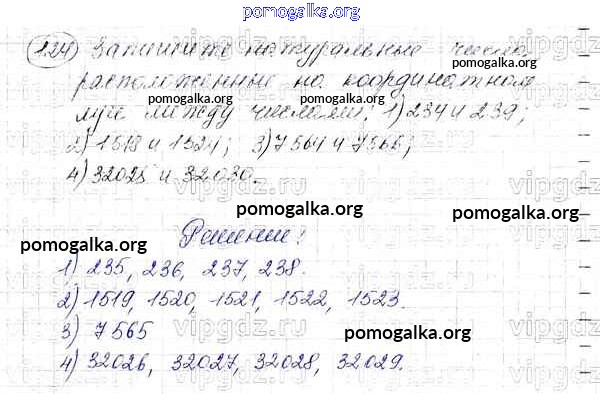 pomogalka.org
1.24) Запишите натуральные числа,
расположенные на координатном
луче между числами: 1) 234 и 239;
2) 1518 и 1524; 3) 7564 и 7566;
4) 32025 и 32030.
Решение:
1) 235, 236, 237, 238.
2) 1519, 1520, 1521, 1522, 1523.
3) 7565
4) 32026, 32027, 32028, 32029.
pomogalka.org
pomogalka.org
pomogalka.org
pomogalka.org
pomogalka.org
pomogalka.org
vipgdz.ru
vipgdz.ru
vipgdz.ru